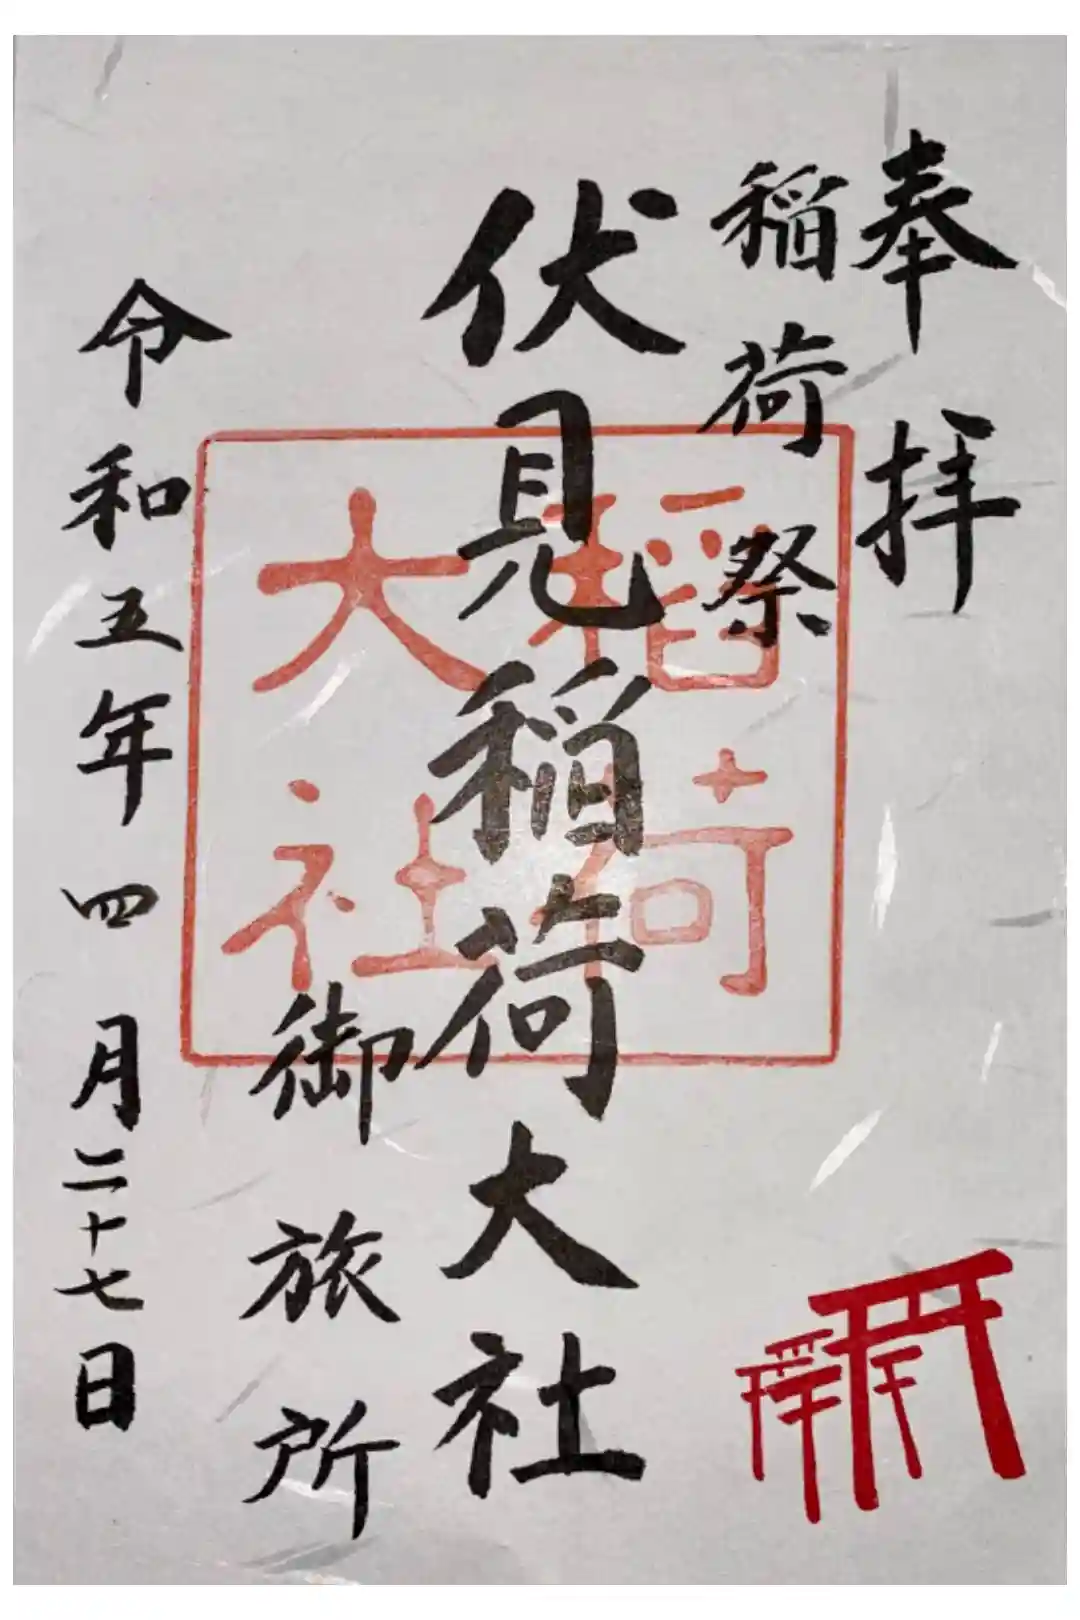 奉拝
稲荷祭
伏見稲荷大社
御旅所
令和五年四月二十七日
稲荷
大社